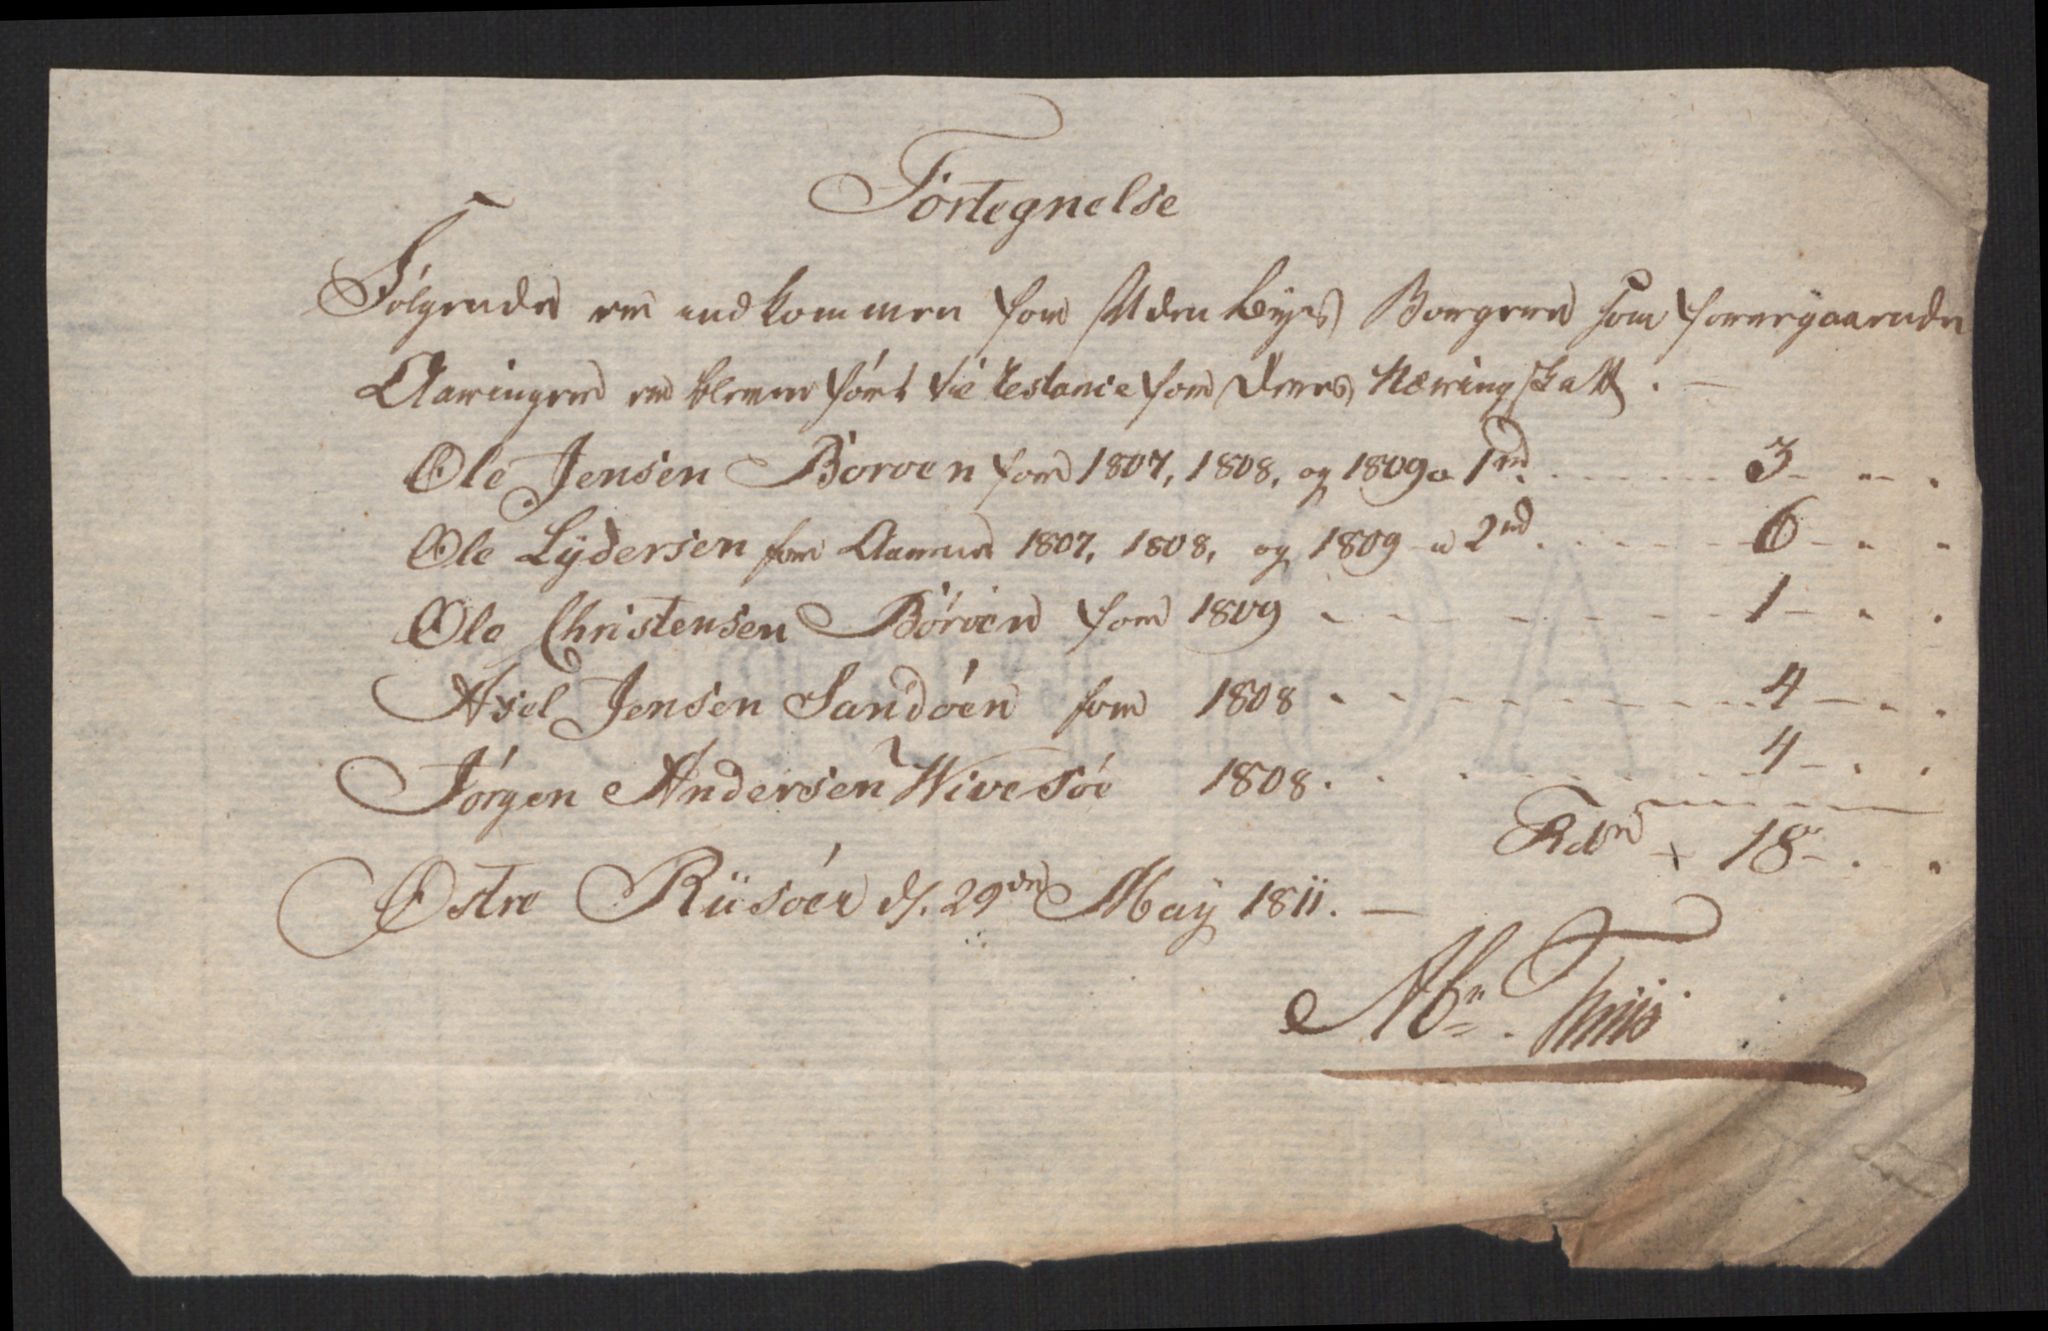 Förtegnelse
Følgende er indkommen for Uden byes Borgere som foregaaende
Aaringer er bleven ført til Restance for deres Næringskatt. —
Ole Jensen Börven for 1807, 1808, og 1809 a 1rd. 3 - - .
Ole Lÿdersen for Aarene 1807, 1808, og 1809 a 2rd. 6 - - .
Ole Christensen Börven for 1809 - - - 1 - - .
Axel Jensen Sandöen for 1808 - - - 4 - - .
Jörgen Andersen Wivesöe 1808. - - - 4 - - .
Rdr 18 - . .
Østre Riisöer d. 29de Maÿ 1811. —
Thiis